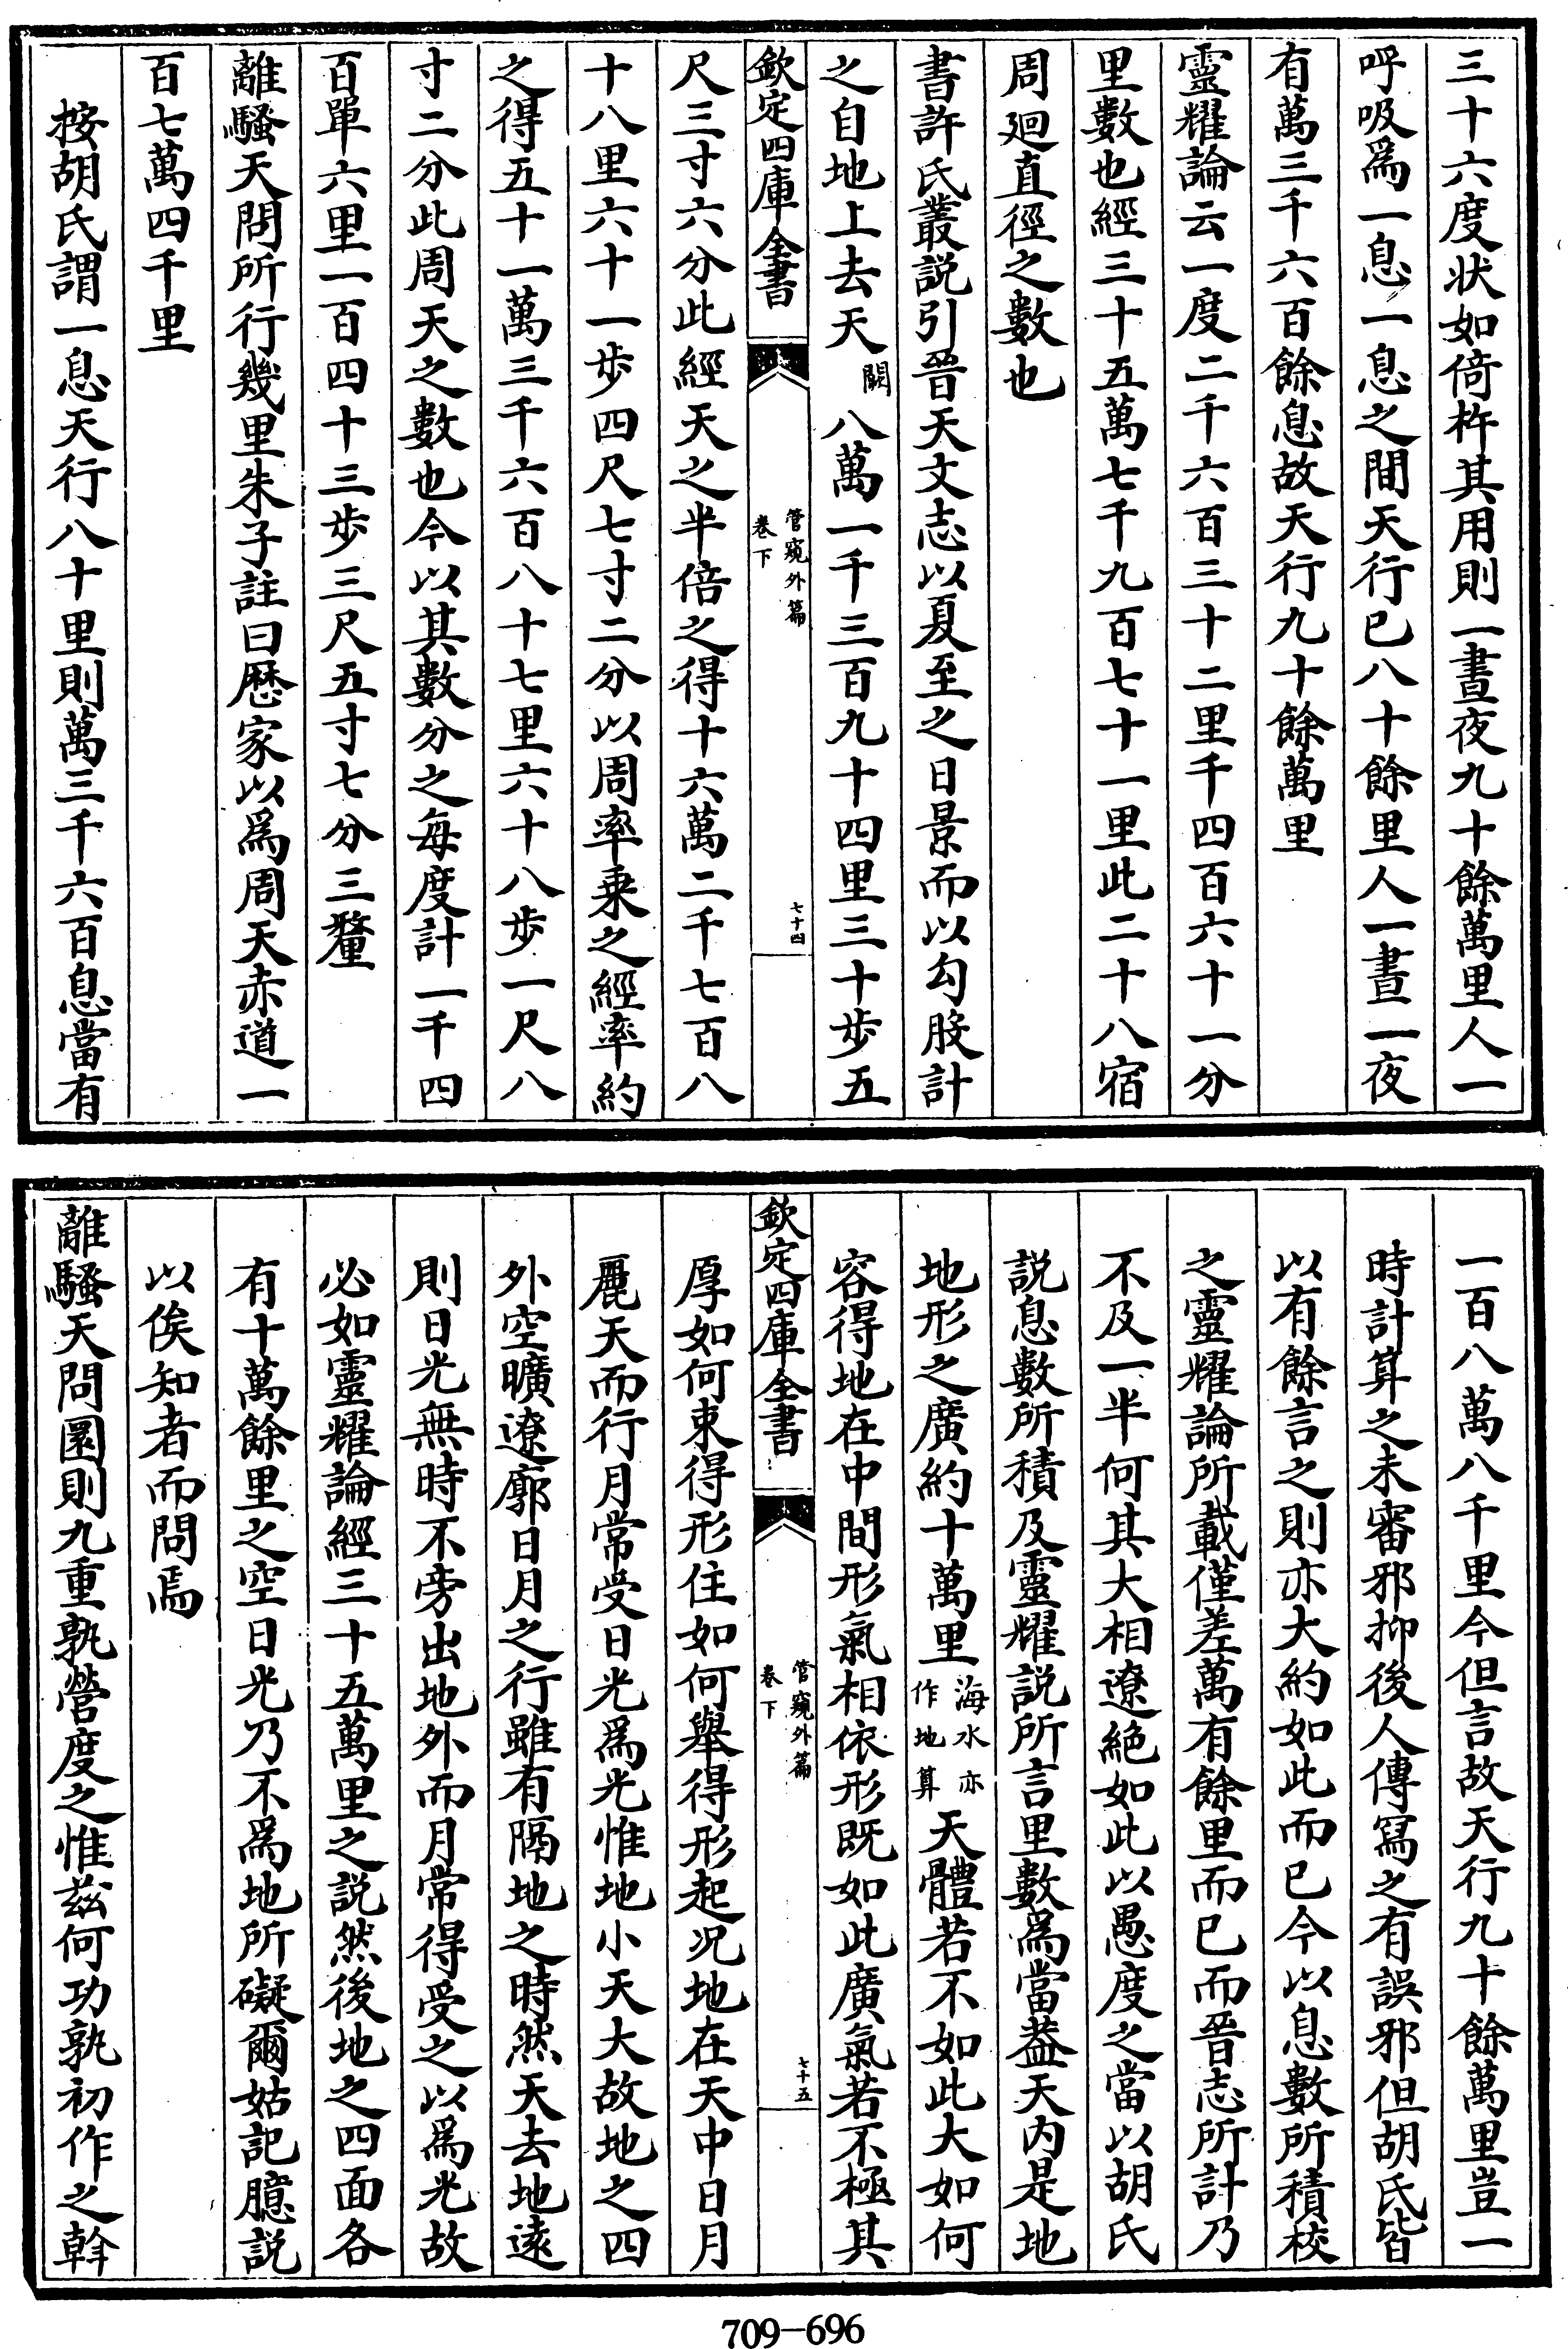 三十六度狀如倚杵其用則一晝夜九十餘萬里人一
呼吸爲一息一息之間天行已八十餘里人一晝一夜
有萬三千六百餘息故天行九十餘萬里
靈耀論云一度二千六百三十二里千四百六十一分
里數也經三十五萬七千九百七十一里此二十八宿
周廻直徑之數也
書許氏叢説引晉天文志以夏至之日景而以勾股計
之自地上去天闕八萬一千三百九十四里三十步五
欽定四庫全書
管窺外篇
卷下
七十四
尺三寸六分此經天之半倍之得十六萬二千七百八
十八里六十一步四尺七寸二分以周率乗之經率約
之得五十一萬三千六百八十七里六十八步一尺八
寸二分此周天之數也今以其數分之每度計一千四
百單六里一百四十三步三尺五寸七分三釐
離騷天問所行幾里朱子註曰厯家以爲周天赤道一
百七萬四千里
按胡氏謂一息天行八十里則萬三千六百息當有
一百八萬八千里今但言故天行九十餘萬里豈一
時計算之未審邪抑後人傳寫之有誤邪但胡氏皆
以有餘言之則亦大約如此而已今以息數所積校
之靈耀論所載僅差萬有餘里而已而晉志所計乃
不及一半何其大相遼絶如此以愚度之當以胡氏
説息數所積及靈耀説所言里數爲當葢天内是地
地形之廣約十萬里海水亦作地算天體若不如此大如何
容得地在中間形氣相依形既如此廣氣若不極其
欽定四庫全書
管窺外篇
卷下
七十五
厚如何束得形住如何舉得形起况地在天中日月
麗天而行月常受日光爲光惟地小天大故地之四
外空曠遼廓日月之行雖有隔地之時然天去地遠
則日光無時不旁出地外而月常得受之以爲光故
必如靈耀論經三十五萬里之説然後地之四面各
有十萬餘里之空日光乃不爲地所礙爾姑記臆説
以俟知者而問焉
離騷天問圜則九重孰營度之惟兹何功孰初作之斡
709-696